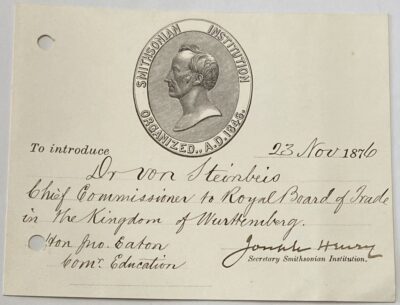 SMITHSONIAN INSTITUTION
ORGANIZED., A.D. 1846.
To introduce 23 Nov 1876
Dr von Steinbeis
Chief Commissioner to Royal Board of Trade
in the Kingdom of Wurttemberg.
Hon Jno. Eaton
Comr. Education
Joseph Henry
Secretary Smithsonian Institution.